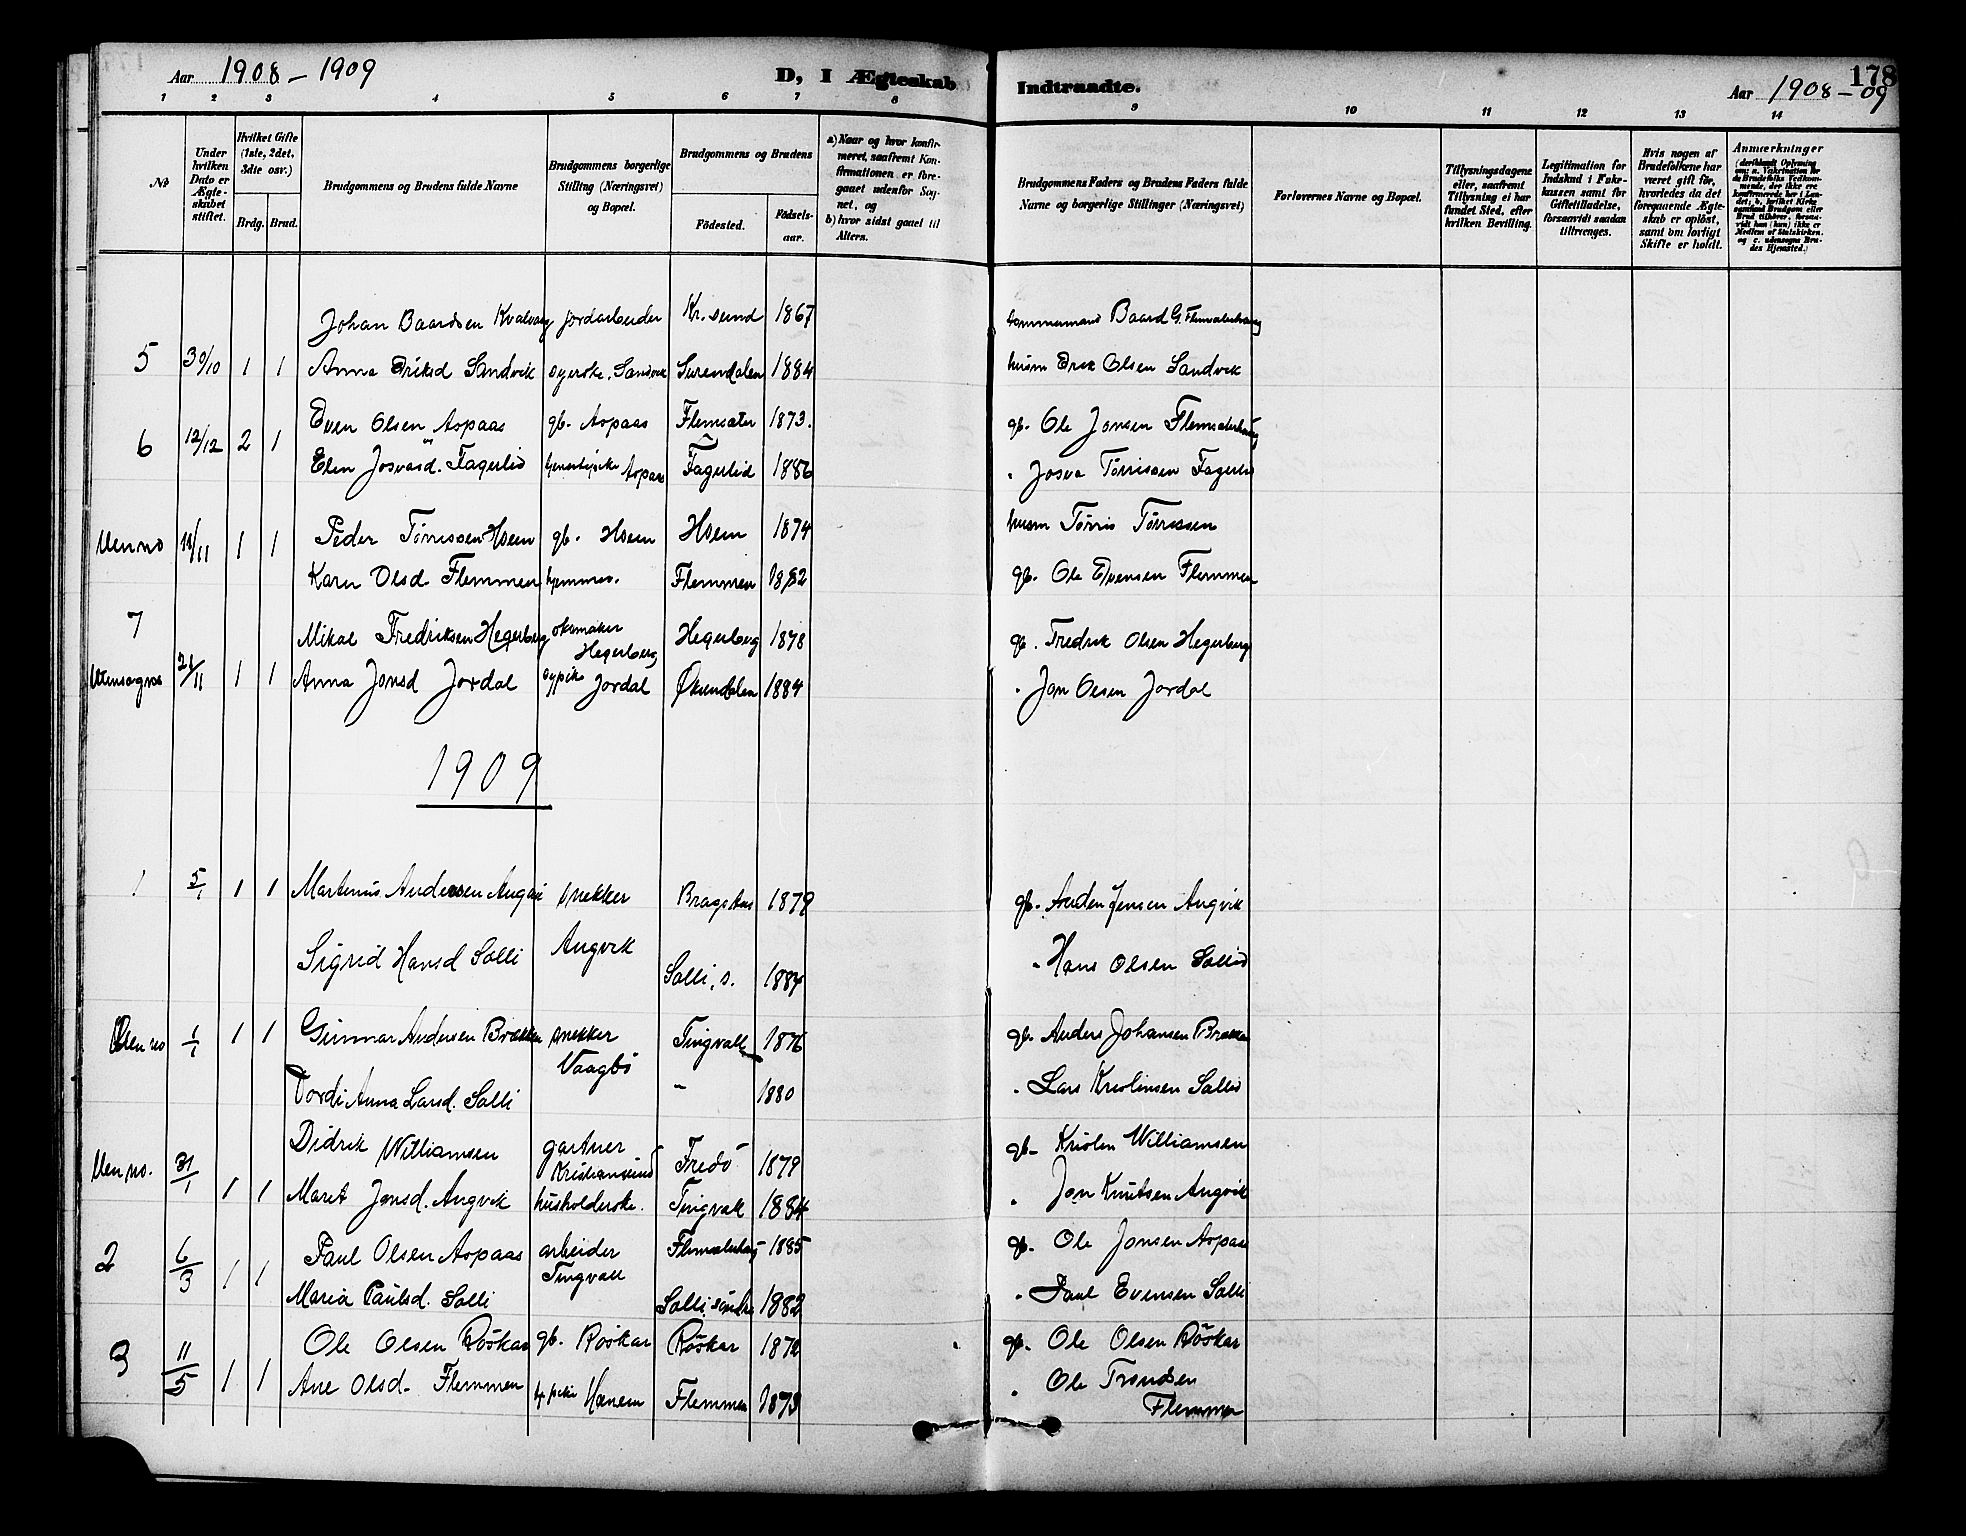 Aar 1908 - 1909
D, I Ægteskab Indtraadte.
Aar 1908 - 09
178
1 2 3 4 5 6 7 8 9 10 11 12 13 14
No
Under hvilken Dato er Ægteskabet stiftet.
Hvilket Gifte (1ste, 2det, 3dte osv.)
Brdg. Brud.
Brudgommens og Brudens fulde Navne
Brudgommens borgerlige Stilling (Næringsvei) og Bopæl.
Brudgommens og Brudens
Födested.
Födselsaar.
a) Naar og hvor konfirmeret, saafremt Konfirmationen er foregaaet udenfor Sognet, og
b) hvor sidst gaaet til Alters.
Brudgommens Faders og Brudens Faders fulde Navne og borgerlige Stillinger (Næringsvei)
Forlovernes Navne og Bopæl.
Tillysningsdagene eller, saafremt Tillysning ei har fundet Sted, efter hvilken Bevilling.
Legitimation for Indskud i Enkekassen samt for Giftetilladelse, forsaavidt saadan tiltrænges.
Hvis nogen af Brudefolkene har været gift för, hvorledes da det foregaaende Ægteskab er oplöst, samt om lovligt Skifte er holdt.
Anmærkninger
Johan Baardsen Kvalvaag jordarbeider Kr.sund 1867 tømmermand Baard G. Flemsæterhaug
5 30/10 1 1 Anna Eriksd Sandvik syerske, Sandvik Surendalen 1884 husm Erik Olsen Sandvik
Even Olsen Aspaas gb. Aspaas Flemsæter 1873. gb. Ole Jonsen Flemsæterhaug
6 12/12 2 1 Elen Josvasd. Fagerlid Aspaas Fagerlid 1886 " Josva Tørrissen Fagerlid
Peder Tørrissen Hoem gb. Hoem Hoem 1874 husm Tørris Tørrissen
Uen no 11 1 1 Karen Olsd Flemmen hjemmev. Flemmen 1882 gb. Ole Evensen Flemmen
7 Mikal Fredriksen Hegerberg skomaker Hegerberg Hegerberg 1878 gb. Fredrik Olsen Hegerberg
Utensogns 21/11 1 1 Anna Jonsd Jordal sypike Jordal Øksendalen 1884 " Jon Olsen Jordal
1909
1 5/1 1 1 Martinus Andersen Angvik snekker Bragstad 1879 gb. Anders Jensen Angvik
Sigrid Hansd Solli Angvik Solli, s. 1884 " Hans Olsen Sollid
Uen no 1/1 1 1 Gunnar Andersen Brækken snekker Tingvoll 1876 gb. Anders Johansen Brækken
Vaagbö
Tordi Anna Larsd. Solli " 1880 " Lars Kristinsen Sollid
Didrik Williamsen gartner Kristiansund Fredö 1879 gb. Kristen Williamsen
Uen no. 31/1 1 1 Marit Jonsd. Angvik husholderske. Tingvoll 1884 " Jon Knutsen Angvik
Paul Olsen Aspaas arbeider Flemsæterhaug 1885 gb. Ole Jonsen Aspaas
2 6/3 1 1 Tingvoll
Maria Paulsd. Solli Solli, söndre 1882 " Paul Evensen Solli
Ole Olsen Röskar gb. Röskar Röskar 1872 gb. Ole Olsen Röskar
3 11/5 1 1 Ane Olsd. Flemmen Hanem Flemmen 1873 " Ole Trondsen
Flemmen